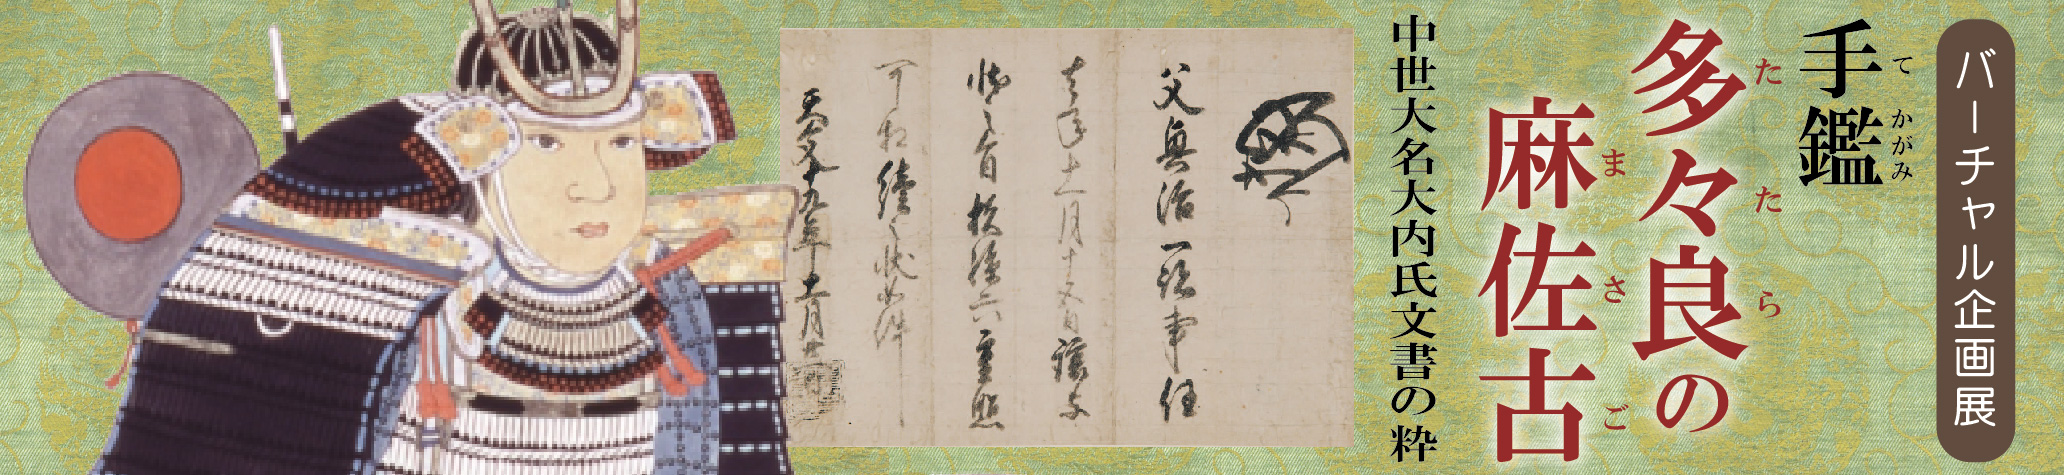 バーチャル企画展
手鑑
てかがみ
多々良の
たたら
麻佐古
まさご
中世大名大内氏文書の粋
父興治一跡事任
去年十一月十五日譲与
状之旨扶持六重煕
可相続之状如件
天文十九年十一月廿